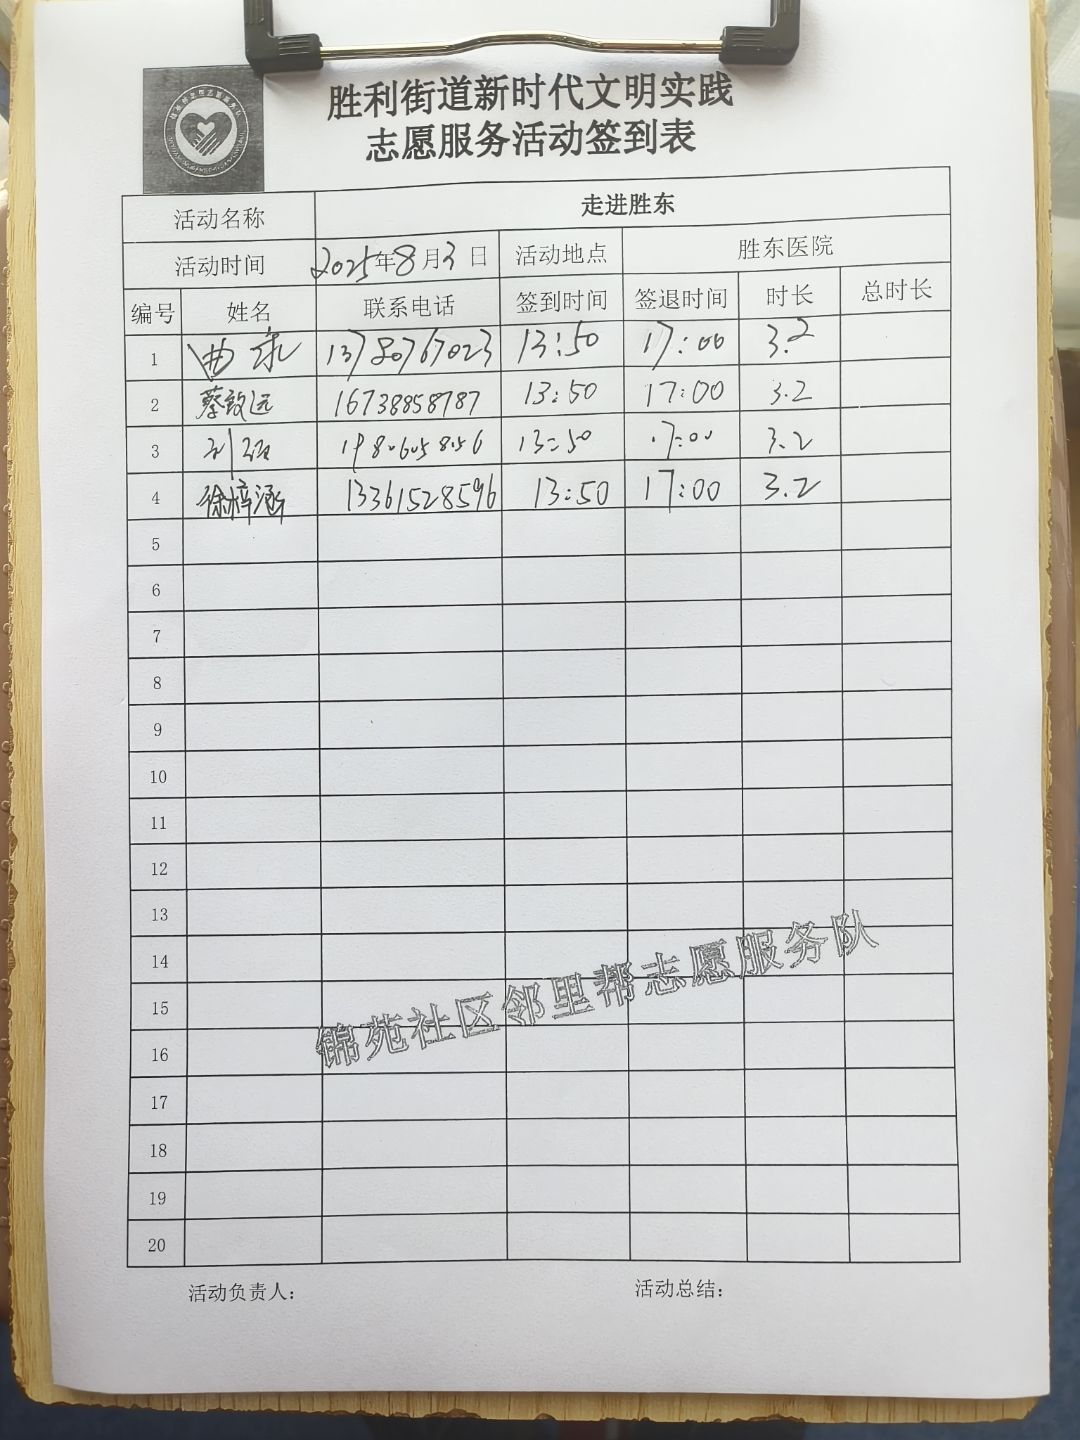 胜利街道新时代文明实践
志愿服务活动签到表
活动名称 走进胜东
活动时间 2025年8月3日 活动地点 胜东医院
编号 姓名 联系电话 签到时间 签退时间 时长 总时长
1 曲 13780767023 13:50 17:00 3.2
2 蔡致远 16738858787 13:50 17:00 3.2
3 刘 19806058056 13:50 17:00 3.2
4 徐梓涵 13361528596 13:50 17:00 3.2
5
6
7
8
9
10
11
12
13
14
15
16
17
18
19
20
锦苑社区邻里帮志愿服务队
活动负责人: 活动总结: